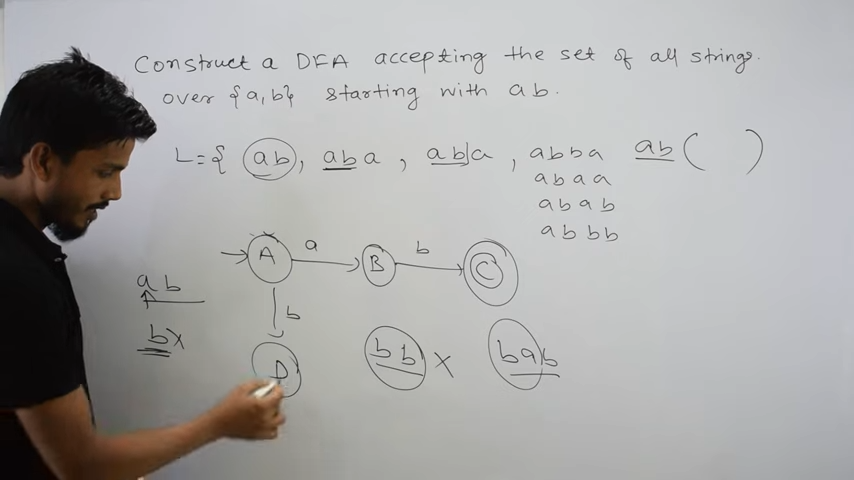 Construct a DFA accepting the set of all strings.
over {a,b} starting with ab.
L={ ab, aba, ab|a, abba ab( )
abaa
abab
abbb
A a B b C
ab
b
b X
D
bb X bab